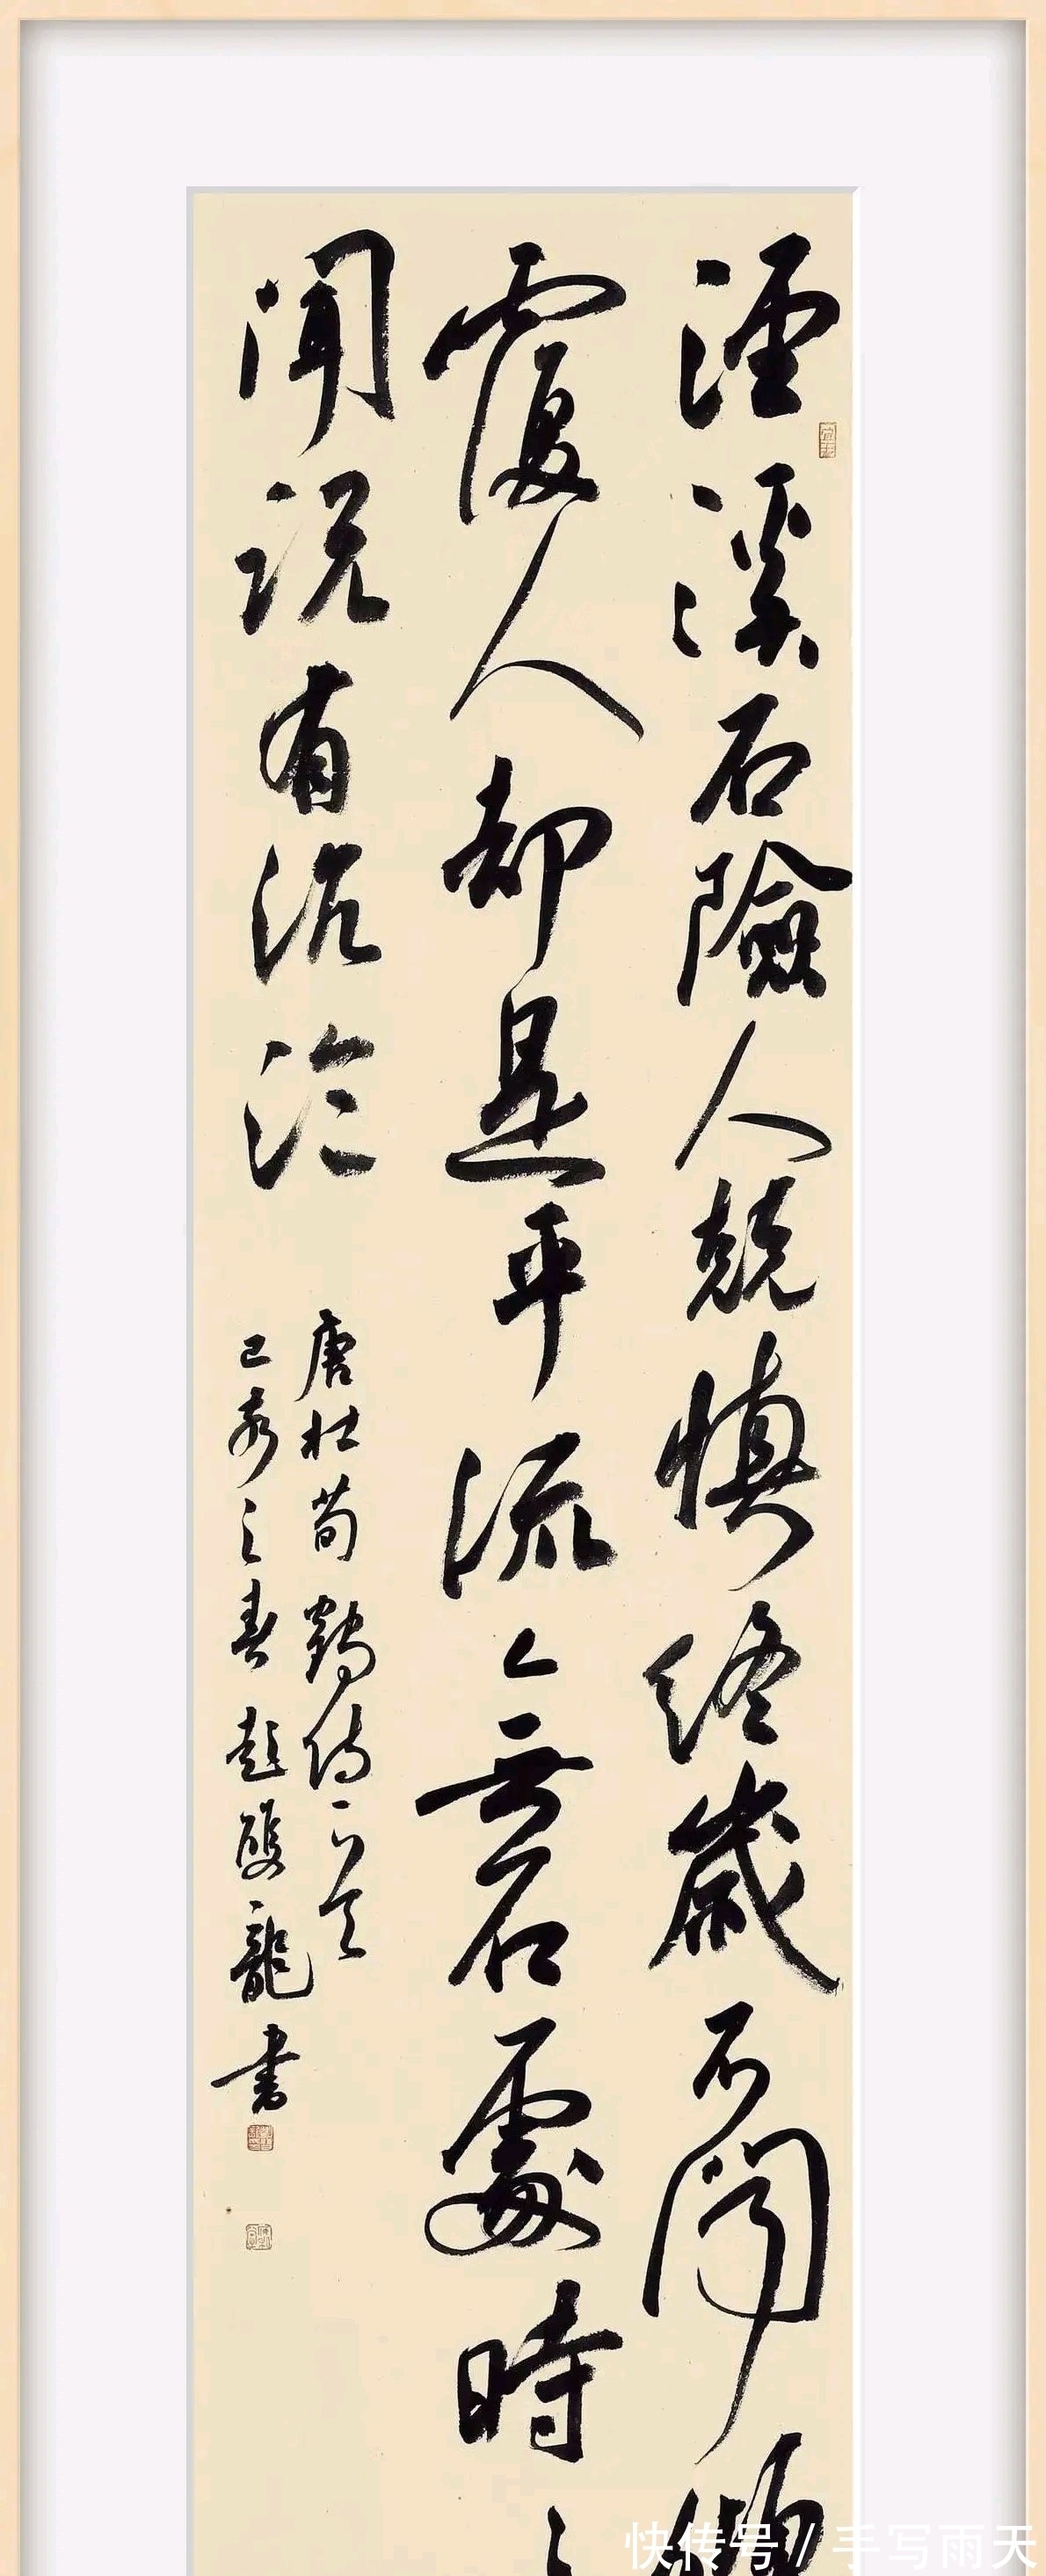 涇溪石險人兢慎終歲不聞傾
覆人却是平流無石處時
聞説有沉淪
唐杜荀鶴詩一首
己亥之春趙雙龍書
快传号 / 手写雨天